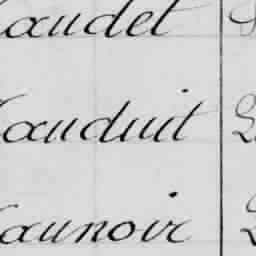 audet
auduit
aunoir